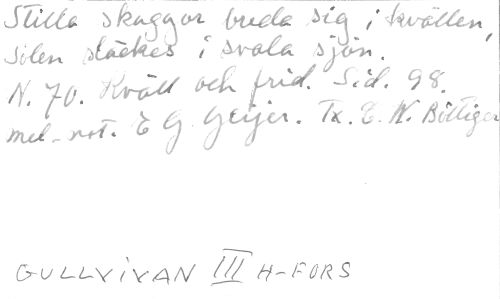 Stilla skuggor breda sig i kvällen,
solen släckes i svala sjön.
N. 70. Kväll och frid. Sid. 98.
mel-not. E G Geijer. Tx. C. W. Böttiger
GULLVIVAN III H-FORS